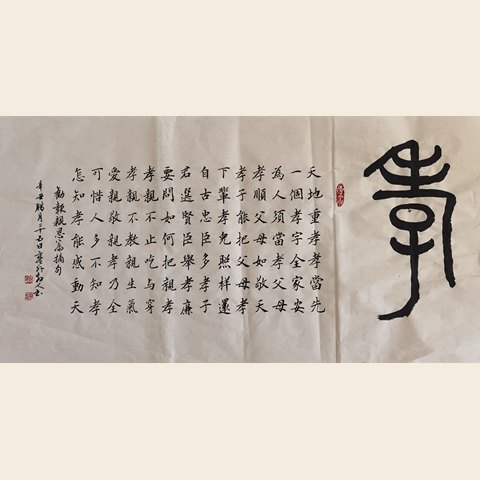 孝
天地重孝孝當先
一個孝字全家安
為人須當孝父母
孝順父母如敬天
孝子能把父母孝
下輩孝兒照樣還
自古忠臣多孝子
君選賢臣舉孝廉
要問如何把親孝
孝親不止吃與穿
孝親不教親生氣
愛親敬親孝乃全
可惜人多不知孝
怎知孝能感動天
勸報親恩篇摘句
辛丑腊月 五日 人书